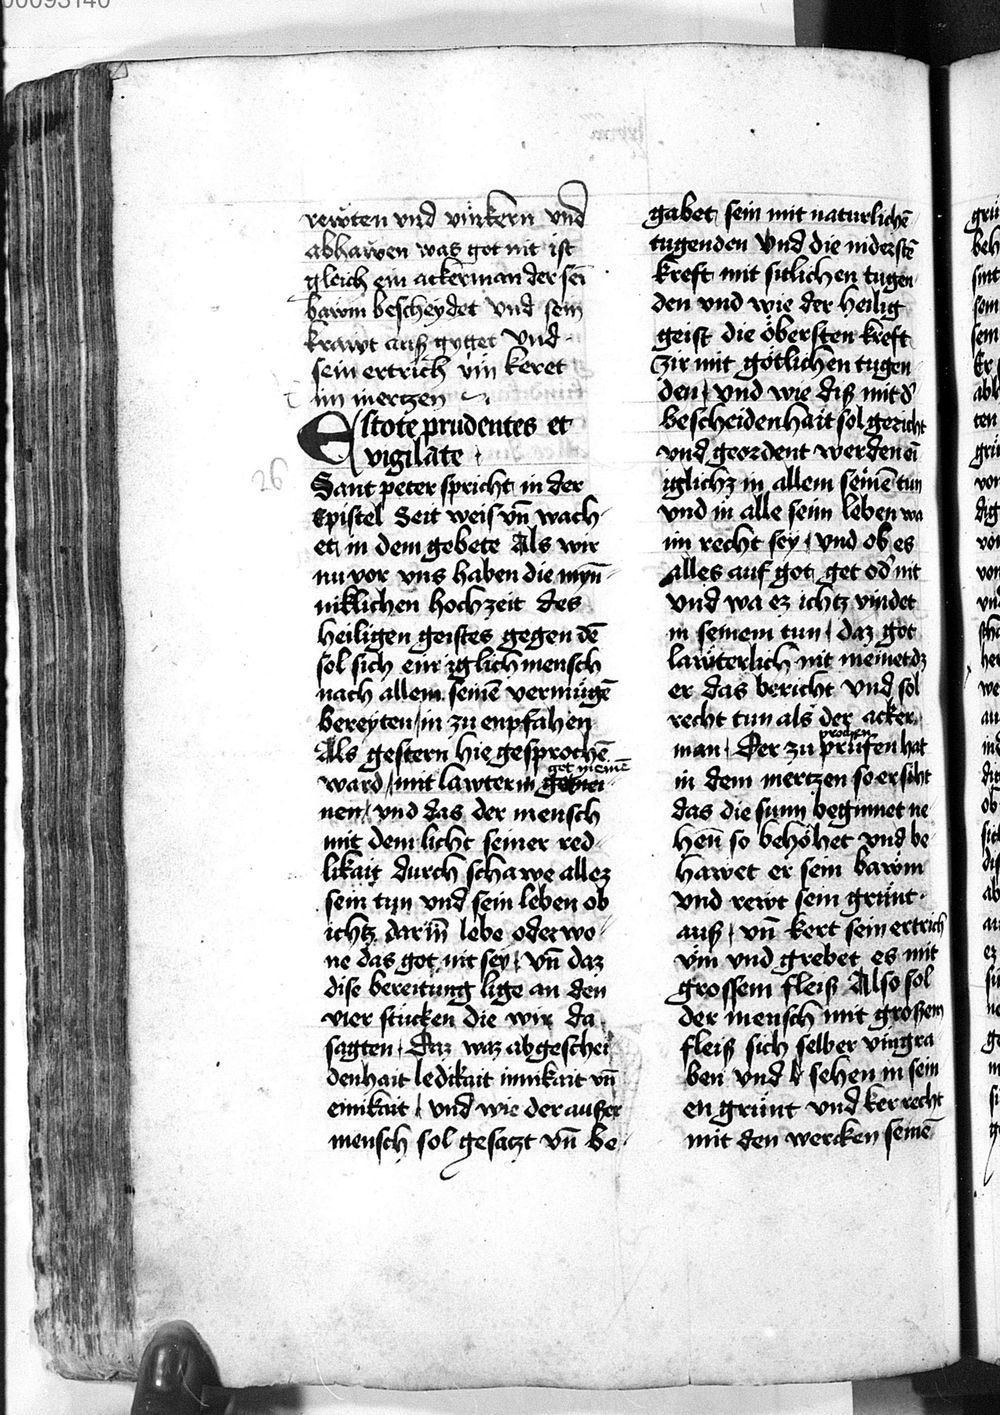 00093140
rewten vnd vmkern vnd
abhawen was got nit ist
gleich ein ackerman der sein
bawm bescheydet vnd sein
krawt auß gyget vnd
sein ertrich vm keret
im mertzen
Estote prudentes et
vigilate
26
Sant peter spricht in der
Epistel Seit weis vn̄ wach
et in dem gebete Als wir
nu vor vns haben die myn̄
niklichen hochzeit des
heiligen geistes gegen dē
sol sich ein iglich mensch
nach allem seinē vermügē
bereyten in zu enpfahen
Als gestern hie gesprochē
ward mit lawterm got meinē
nen vnd das der mensch
mit dem licht seiner red
likait durch schawe allez
sein tun vnd sein leben ob
ichtz darin̄ lebe oder wo
ne das got nit sey vn̄ daz
dise bereitung lige an den
vier stucken die wir da
sagten Daz waz abgeschei
denhait ledikait innikait vn̄
einikait vnd wie der außer
mensch sol gesatzt vn̄ be
gabet sein mit naturlichē
tugenden Vnd die niderstē
kreft mit sitlichen tugen
den vnd wie der heilig
geist die öbersten kreft
zir mit götlichen tugen
den vnd wie diß mit d'
bescheidenhait sol gericht
vnd geordent werden ein
iglichz in allem seinē tun
vnd in alle seim leben wa
im recht sey vnd ob es
alles auf got get od' nit
vnd wa ez ichtz vindet
in seinem tun daz got
lawterlich nit meinet dz
er das bericht vnd sol
recht tun als der acker
prochen
man Der zu prüfen hat
in dem mertzen so er siht
das die sunn beginnet ne
hen̄ so behöhet vnd be
hawet er sein bawm
vnd rewt sein grünt
auß vn̄ kert sein ertrich
vm vnd grebet es mit
grossem fleiß Also sol
der mensch mit großem
fleiß sich selber vmgra
ben vnd sehen in sein
en grünt vnd ker recht
mit den wercken seinē